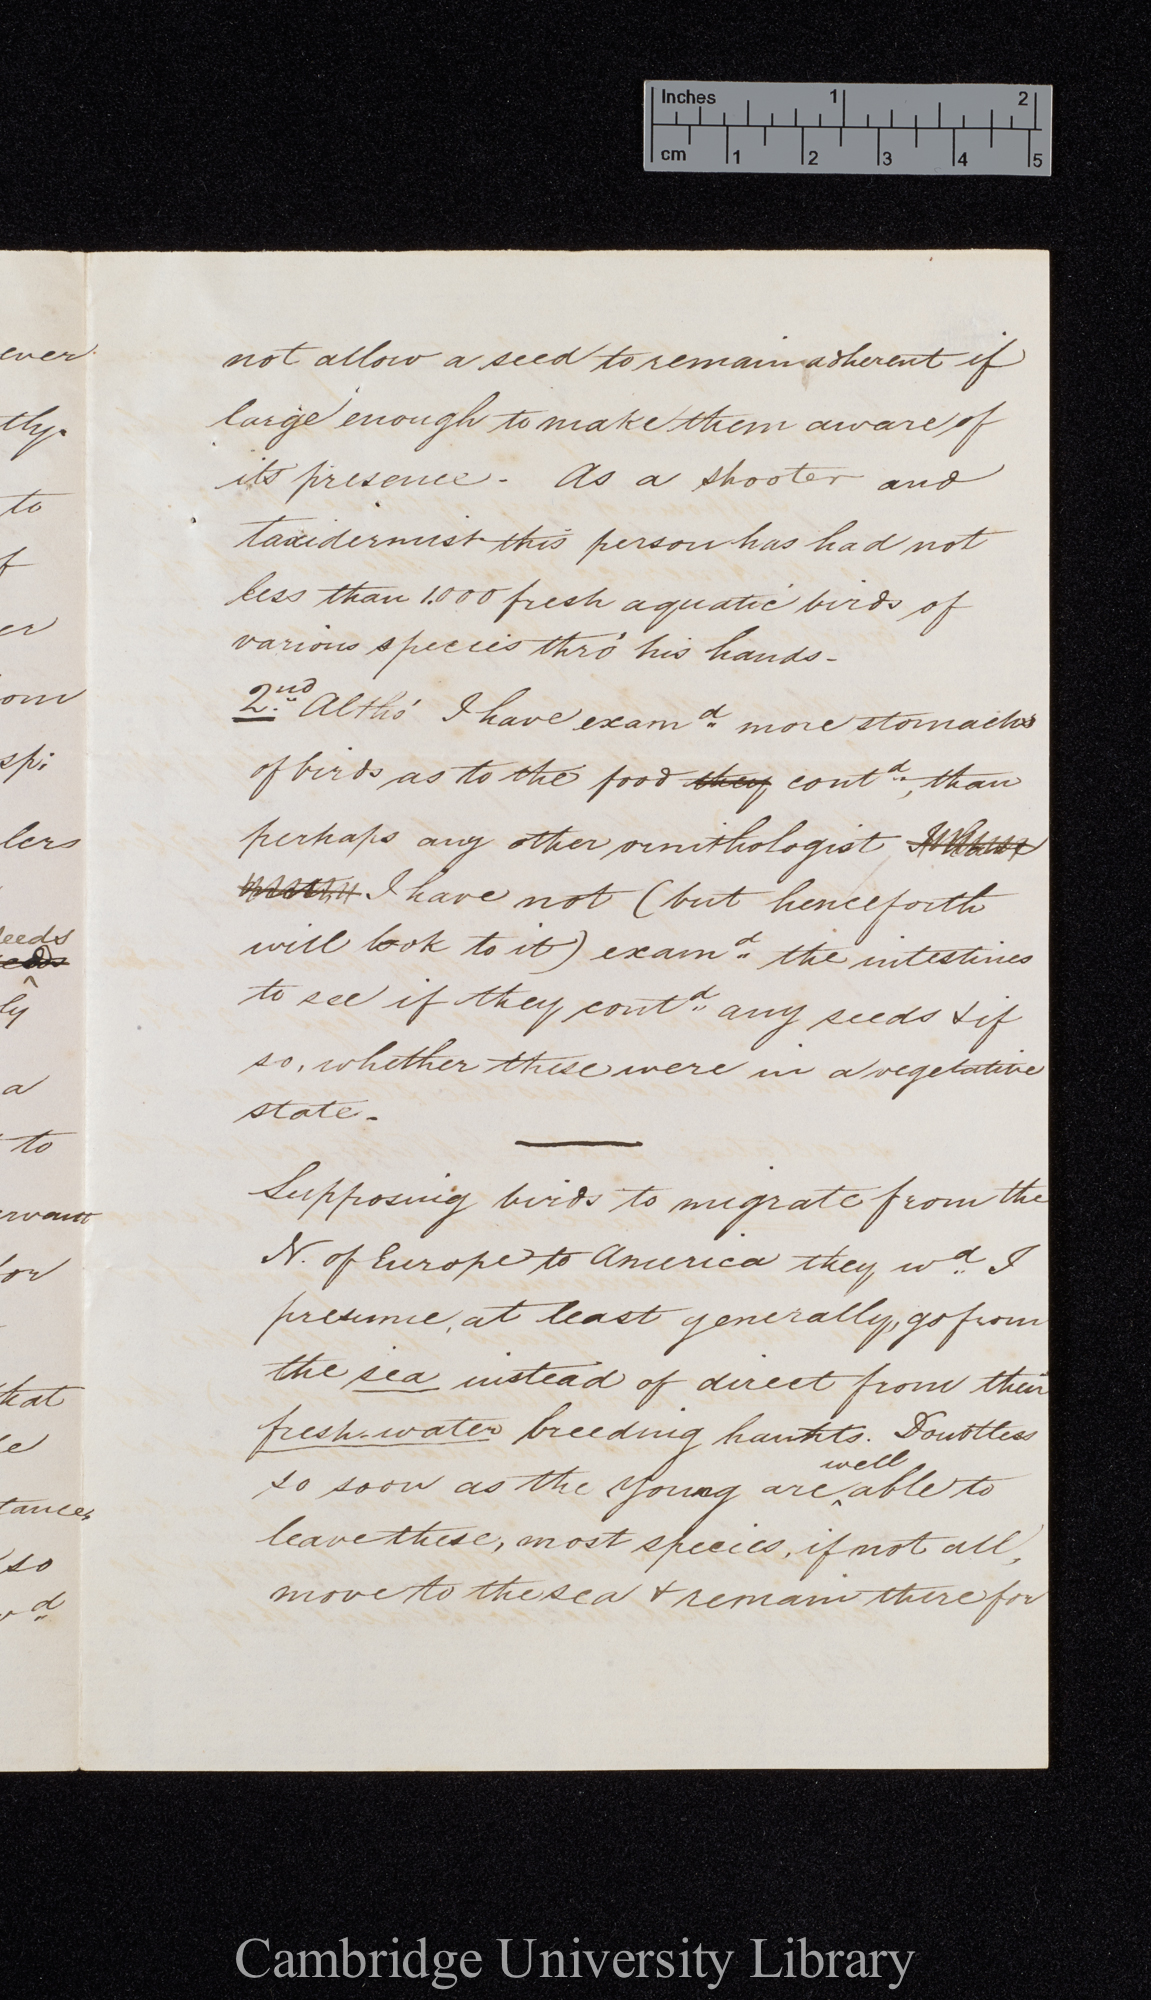 Inches 1 2
cm 1 2 3 4 5
ever
tly.
to
f
er
om
spi
lers
eeds
ly
a
to
ervant
for
that
le
tances
so
d
not allow a seed to remain adherent if
large enough to make them aware of
its presence. As a shooter and
taxidermist this person has had not
less than 1.000 fresh aquatic birds of
various species thro' his hands.
2nd Altho' I have examd more stomachs
of birds as to the food they contd, than
perhaps any other ornithologist
I have not (but henceforth
will look to it) examd the intestines
to see if they contd any seeds & if
so, whether these were in a vegetative
state.
Supposing birds to migrate from the
N. of Europe to America they wd I
presume, at least generally, go from
the sea instead of direct from their
fresh-water breeding haunts. Doubtless
so soon as the young are well able to
leave these, most species, if not all,
move to the sea & remain there for
Cambridge University Library